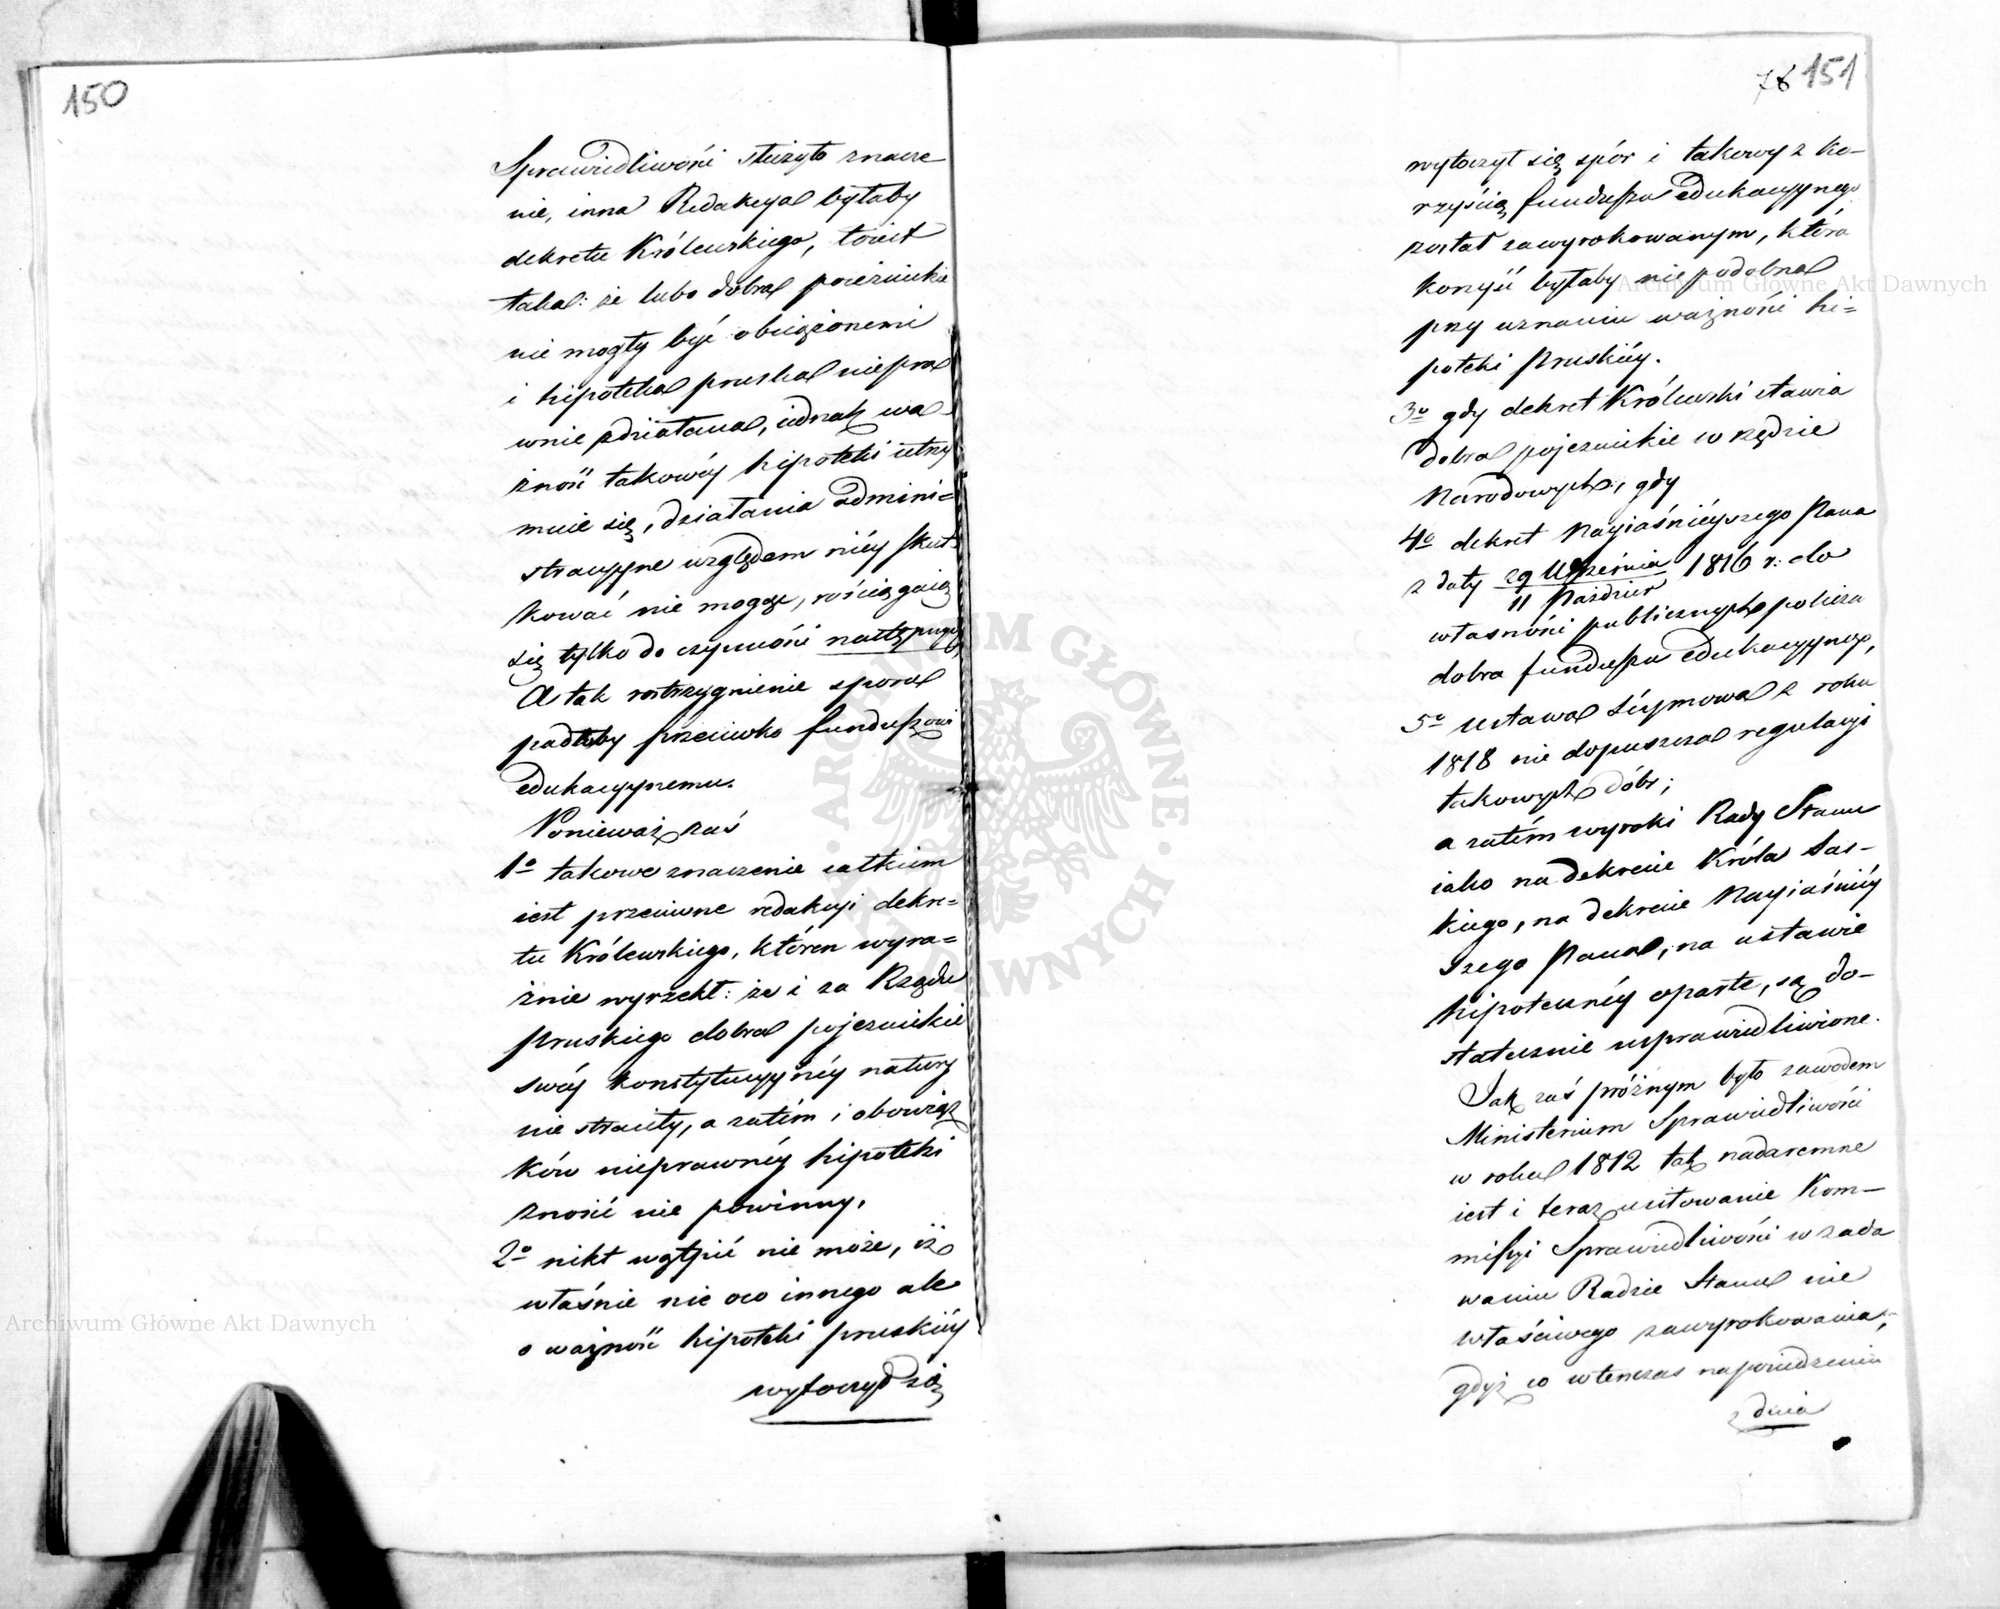 150
Sprawiedliwości służyło znacze
nie, inna Redakcya byłaby
dekretu Królewskiego, toiest
taka: że lubo dobra poiezuickie
nie mogły być obciążonemi
i hipoteka pruska niepra
wnie zdziałana, iednak wa-
żność takowéy hipoteki utrzy
muie się, działania admini=
stracyyne względem niéy skut-
kować nie mogą, rościągaią
się tylko do czynności następnych,
A tak rostrzygnienie sporu
padłoby przeciwko funduszowi
edukacyynemu.
Ponieważ zaś
1o takowe znaczenie całkiem
iest przeciwne redakcyi dekre=
tu Królewskiego, któren wyra=
źnie wyrzekł: że i za Rządu
pruskiego dobra pojezuickie
swéy konstytucyynéy natury
nie straciły, a zatém i obowiąz
ków nieprawnéy hipoteki
znosić nie powinny.
2o nikt wątpić nie może, iż
właśnie nie oco innego ale
o ważność hipoteki pruskiéy
wytoczył się
76 151
wytoczył się spór i takowy z ko-
rzyścią funduszu edukacyynego
został zawyrokowanym, która
korzyść byłaby niepodobna
przy uznaniu ważności hi=
poteki pruskiéy.
3o gdy dekret Królewski stawia
dobra pojezuickie w rzędzie
Narodowych, gdy
4o dekret Nayiaśnieyszego Pana
z daty 29 Września 1816 r: do
11 Paździer
własności publicznych policza
dobra funduszu edukacyynego,
5o Ustawa séymowa z roku
1818 nie dopuszcza regulacyi
takowych dóbr;
a zatém wyroki Rady Stanu
iako na dekrecie Króla Sas-
kiego, na dekrecie Nayiaśniéy
szego Pana, na ustawie
hipotecznéy oparte, są do-
statecznie usprawiedliwione.
Jak zaś próżnym było zawodem
Ministerium Sprawiedliwości
w roku 1812 tak nadaremne
iest i teraz usiłowanie Kom-
missyi Sprawiedliwości w zada
waniu Radzie Stanu nie
właściwego zawyrokowania,
gdyż co wtenczas napowiedzeniu
z dnia
Archiwum Główne Akt Dawnych
Archiwum Główne Akt Dawnych
ARCHIWUM GŁÓWNE AKT DAWNYCH